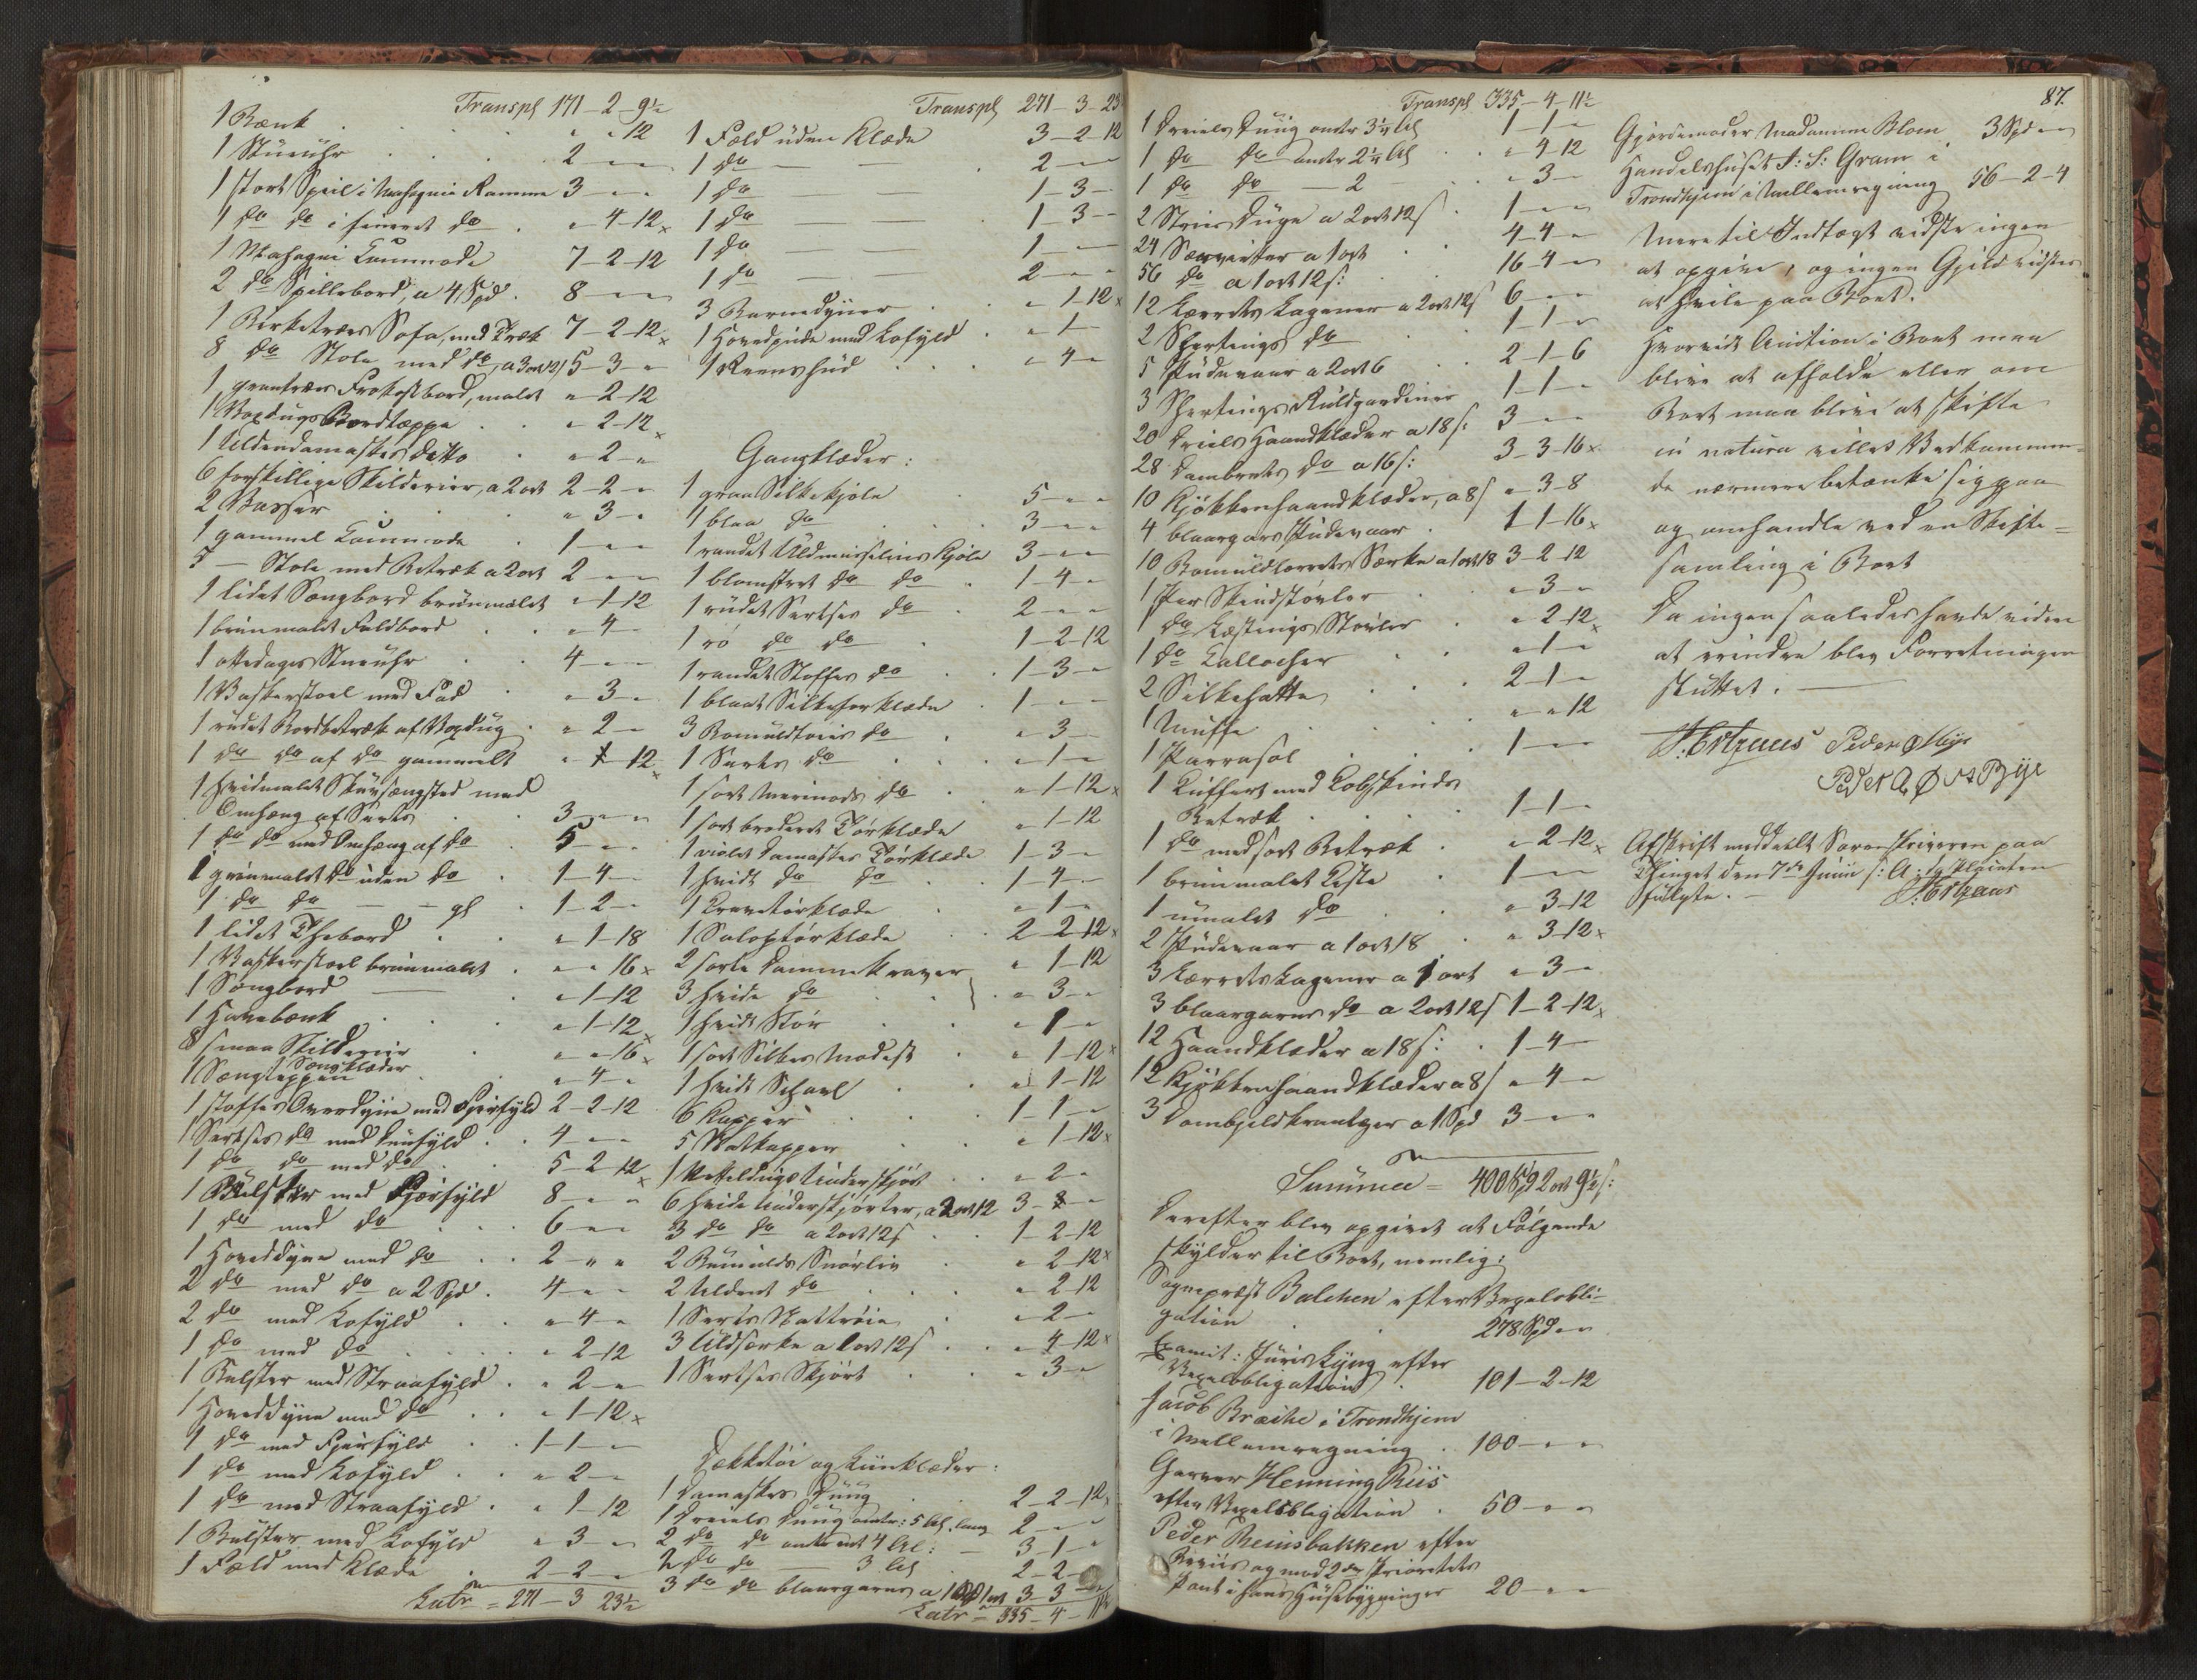 Transpt 171 - 2 - 9½
1 Bænk . . . " - " 12
1 Stueuhr . . 2 - " - "
1 stort Speil i Mahogni Ramme 3 - " - "
1 do do i fineret do . " - 4 - 12
1 Mahogni Kommode 7 - 2 - 12
2 do Spillebord, a 4 Spd . 8 - " - "
1 Birketræes Sofa, med Træk 7 - 2 - 12
8 do Stole med do, a 3 ort 12 5 - 3 - "
1 grantræes Frokostbord, malet " - 2 - 12
1 Voxdugs Bordteppe . . " - 2 - 12
1 Uldendamaskes ditto . " - 2 - "
6 forskillige Skilderier, a 2 ort 2 - 2 - "
2 Vasser . . " - 3 - "
1 gammel Kommode . 1 - " - "
5 - Stole med Betræk a 2 ort 2 - " - "
1 lidet Sengbord brunmalet " - 1 - 12
1 brunmalet Foldbord . . " - 4 - "
1 ottedages Stueuhr . . 4 - " - "
1 Vaskerstoel med Fad . " - 3 - "
1 rudet Bordbetræk af Voxdug . " - 2 - "
1 do do af do gammelt " - 1 - 12
1 hvidmalet Skuvsengsted med
Omhæng af Sirts . . 3 - " - "
1 do do med Omhæng af do . 5 - " - "
1 grønmalet do uden do . 1 - 4 - "
1 do do - - gl . 1 - 2 - "
1 lidet Thebord . . " - 1 - 18
1 Vaskerstoel brunmalet . " - " 16
1 Sengbord . " - 1 - 12
1 Havebænk . . . " - 1 - 12
8 smaa Skilderier . " - " 16
Sengklæder
1 Sengteppen . . " - 4 - "
1 stoffes Overdyne med Fjærfyld 2 - 2 - 12
1 Sirtses do med Duunfyld . . 4 - " - "
1 do do med do . . 5 - 2 - 12
1 Bulster med Fjærfyld 8 - " - "
1 do med do . . . 6 - " - "
1 Hoveddyne med do . . 2 - " - "
2 do med do a 2 Spd . 4 - " - "
2 do med Kofyld . . " - 4 - "
1 do med do . . . . " - 2 - 12
1 Bulster med Straafyld . " - 2 - "
1 Hoveddyne med do . . " - 1 - 12
1 do med Fjærfyld . . 1 - 1 - "
1 do med Kofyld . . " - 2 - "
1 do med Straafyld . " - 1 - 12
1 Bulster med Kofyld " - 3 - "
1 Fæld med Klæde . 2 - 2 - "
Latr = 271 - 3 23½
Transpt 271 - 3 - 23½
1 Fæld uden Klæde 3 - 2 - 12
1 do - 2 - " - "
1 do - 1 - 3 - "
1 do - 1 - 3 - "
1 do - 1 - " - "
1 do - 2 - " - "
3 Barnedyner . . " - 1 - 12
1 Hovedpude med Kofyld . " - 1 - "
1 Reenshud . . . " - 4 - "
Gangklæder:
1 graa Silkekjole . 5 - " - "
1 blaa do . . . 3 - " - "
1 randet Uldmusselins Kjole 3 - " - "
1 blomstret do do . 1 - 4 - "
1 rudet Sirtses do . 2 - " - "
1 rø do do . 1 - 2 - 12
1 randet Stoffes do . . 1 - 3 - "
1 blaat Silkeforklæde . 1 - " - "
3 Bomuldtøies do . " - 3 - "
1 Sirts do . . . " - 1 - "
1 sort Merinos do . " - 1 - 12
1 sort broderet Tørklæde " - 1 - 12
1 violet Damaskes Tørklæde 1 - 3 - "
1 hvidt do do . . 1 - 4 - "
1 Kravetørklæde . " - 1 - "
1 Saloptørklæde . . 2 - 2 - 12
2 sorte Damme Kraver " - 1 - 12
3 hvide do . . " - 3 - "
1 hvidt Slør . . " - 1 - "
1 sort Silkes Modest . " - 1 - 12
1 hvidt Schavl . . " - 1 - 12
6 Kapper . . . 1 - 1 - "
5 Natkapper . . " - 1 - 12
1 Underskjørt . " - 2 - "
6 hvide Underskjørter, a 2 ort 12 3 - " - "
3 do do a 2 ort 12 s . . 1 - 2 - 12
2 Bumulds Snørliv . " - 2 - 12
2 Uldent do . . . " - 2 - 12
1 Sirts Nattrøie . " - 2 - "
3 Uldsærke a 1 ort 12 s . . " - 4 - 12
1 Sirtses Skjørt . . " - 3 - "
Dækketøi og Liinklæder:
1 Damaskes Duug . 2 - 2 - 12
1 Dreiels Duug omtr: 5 Al. lang 2 - " - "
2 do do omtrent 4 Al: - 3 - 1 - "
2 do do - 3 Al . 2 - 2 - "
3 do do blaargarns a 1 Spd 1 ort 3 - 3 - "
Latr = 335 - 4 - 11½
Transpt 335 - 4 - 11½
1 Dreiels Duug omtr 3¼ Al 1 - 1 - "
1 do do omtr 2¼ Al . . " - 4 - 12
1 do do - 2 - . . " - 3 - "
2 Stries Duge a 2 ort 12 s . 1 - " - "
24 Servietter a 1 ort . . 4 - 4 - "
56 do a 1 ort 12 s: 16 - 4 - "
12 Lærrets Lagener a 2 ort 12 s 6 - " - "
2 Shertings do . . 1 - 1 - "
5 Pudevaar a 2 ort 6 . 2 - 1 - 6
3 Shertings Rulgardiner 1 - 1 - "
20 Dreiels Haandklæder a 18 s: 3 - " - "
28 Dambrets do a 16 s: 3 - 3 - 16
10 Kjøkkenhaandklæder, a 8 s " - 3 - 8
4 blaargars Pudevaar . 1 - 1 - 16
10 Bomuldlerrets Særke a 1 ort 18 3 - 2 - 12
1 Par Skindstøvler . . " - 3 - "
1 do Læstings Støvler . " - 2 - 12
1 do Kallocher . . " - 1 - "
2 Silkehatte . . . 2 - 1 - "
1 Muffe . . . " - " 12
1 Parrasol . . . 1 - " - "
1 Kuffert med Kobskinds
Betræk . . . 1 - 1 - "
1 do med sort Betræk . " - 2 - 12
1 brunmalet Kiste . 1 - " - "
1 umalet do . . " - 3 - 12
2 Pudevaar a 1 ort 18 . " - 3 - 12
3 Lærrets Lagener a 1 ort " - 3 - "
3 blaargarns do a 2 ort 12 s 1 - 2 - 12
12 Haandklæder a 18 s: . 1 - 4 - "
12 Kjøkkenhaandklæder a 8 s " - 4 - "
3 a 1 Spd 3 - " - "
Summa - 400 Spd 2 ort 9½ s:
Derefter blev opgivet at Følgende
skylder til Boet, nemlig:
Sognepræst Balchen efter Vexelobli-
gation . . 278 Spd " - "
Examit: Juris Lyng efter
Vexelobligation . 101 - 2 - 12
Jacob Braihe i Trondhjem
i Mellemregning . 100 - " - "
Garver Henning Riis
efter Vexelobligation . 50 - " - "
Peder Reinsbakken efter
Beviis og mod 2den Prioritets
Pant i hans Huusbygninger 20 - " - "
87.
Gjordemoder Madamme Blom 3 Spd " - "
Handelshuset J: S: Gram i
Trondhjem i Mellemregning 56 - 2 - 4
Mere til Indtægt vidste ingen
at opgive, og ingen Gjeld vidstes
at hvile paa Boet.
Hvorvidt Auction i Boet maa
blive at afholde eller om
Boet maa blive at skifte
in natura villet Vedkommen-
de nærmere betænke sig paa
og omhandle ved en Skifte-
samling i Boet
Da ingen saaledes havde videre
at erindre blev Forretningen
sluttet. -
Peder Øst Bye
Afskrift meddeelt Sorenskriveren paa
Thinget den 7de Juni s: A:
fulgte. -